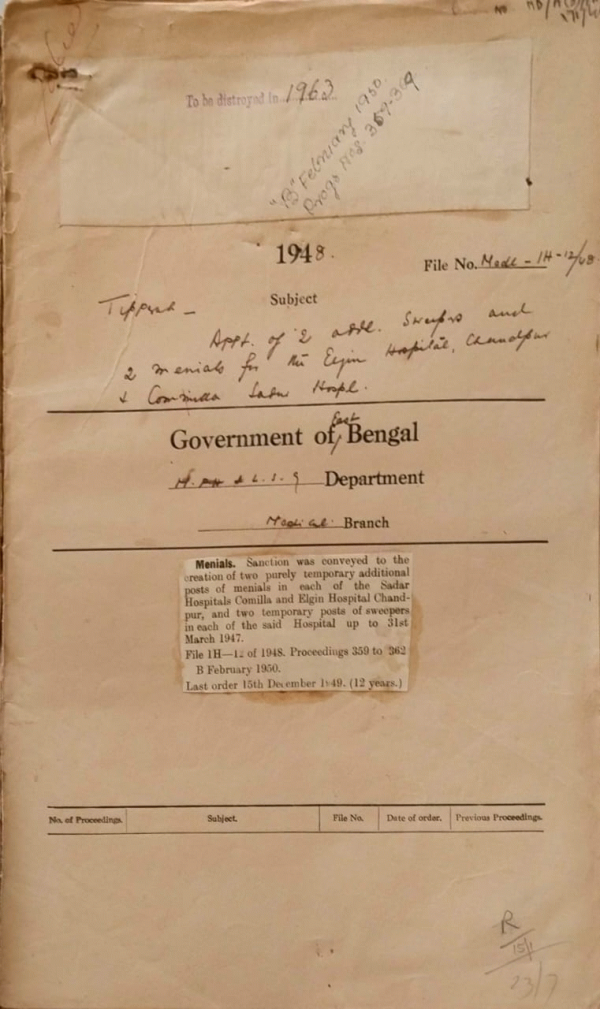 To be distroyed in 1963
"B" February 1950
Progs Nos. 359-362
1948.
File No. Medl - 1H-12/48
Subject
Tipperah -
Appt. of 2 addl. Sweepers and
2 menials for the Elgin Hospital, Chandpur
& Comilla Sadar Hospl.
Government of East Bengal
H. PH & L. S. G Department
Medical Branch
Menials. Sanction was conveyed to the
creation of two purely temporary additional
posts of menials in each of the Sadar
Hospitals Comilla and Elgin Hospital Chand-
pur, and two temporary posts of sweepers
in each of the said Hospital up to 31st
March 1947.
File 1H—12 of 1948. Proceedings 359 to 362
B February 1950.
Last order 15th December 1949. (12 years.)
No. of Proceedings. Subject. File No. Date of order. Previous Proceedings.
R
15/1
23/7